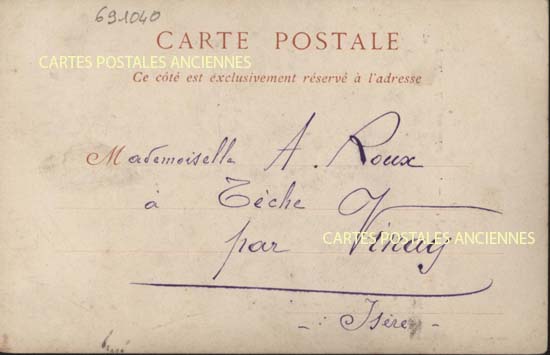 691040
CARTE POSTALE
CARTES POSTALES ANCIENNES
Ce côté est exclusivement réservé à l'adresse
Mademoiselle A. Roux
à Têche
par Vinay
CARTES POSTALES ANCIENNES
Isère